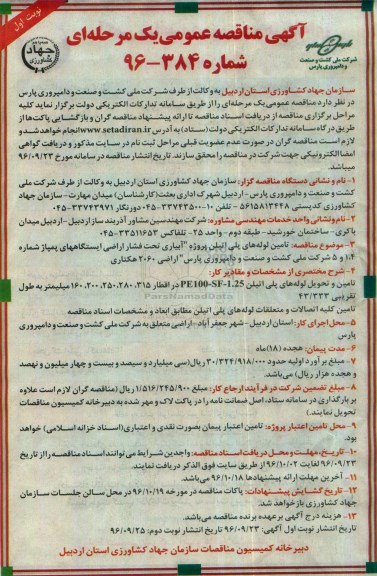 نوبت اول
آگهی مناقصه عمومی یک مرحله‌ای
شماره ۳۸۴-۹۶
جهاد
کشاورزی
شرکت ملی کشت و صنعت
و دامپروری پارس
سازمان جهاد کشاورزی استان اردبیل به وکالت از طرف شرکت ملی کشت و صنعت و دامپروری پارس
در نظر دارد مناقصه عمومی یک مرحله‌ای را از طریق سامانه تدارکات الکترونیکی دولت برگزار نماید کلیه
مراحل برگزاری مناقصه از دریافت اسناد مناقصه تا ارائه پیشنهاد مناقصه گران و بازگشایی پاکت‌ها از
طریق درگاه سامانه تدارکات الکترونیکی دولت (ستاد) به آدرس www.setadiran.ir انجام خواهد شد و
لازم است مناقصه گران در صورت عدم عضویت قبلی مراحل ثبت نام در سایت مذکور و دریافت گواهی
امضا الکترونیکی جهت شرکت در مناقصه را محقق سازند. تاریخ انتشار مناقصه در سامانه مورخ ۹۶/۰۹/۲۳
میباشد.
۱- نام و نشانی دستگاه مناقصه گزار: سازمان جهاد کشاورزی استان اردبیل به وکالت از طرف شرکت ملی
کشت و صنعت و دامپروری پارس - اردبیل شهرک اداری بعثت (کارشناسان) میدان مهارت - سازمان جهاد
کشاورزی کدپستی ۵۶۱۵۸۱۳۴۴۸ - تلفن ۱۰-۳۳۷۴۳۵۰۰-۰۴۵ دورنگار ۳۳۷۴۳۹۷۱-۰۴۵
۲- نام و نشانی واحد خدمات مهندسی مشاوره: شرکت مهندسین مشاور آذربند ساز اردبیل - اردبیل میدان
باکری - ساختمان خورشید - طبقه دوم - واحد ۲۵ - تلفاکس ۳۳۵۱۱۶۵۳-۰۴۵
۳- موضوع مناقصه: تامین لوله‌های پلی اتیلن پروژه "آبیاری تحت فشار اراضی ایستگاههای پمپاژ شماره
۱،۴ و ۵ شرکت ملی کشت و صنعت و دامپروری پارس" اراضی ۲۰۶۰ هکتاری
۴- شرح مختصری از مشخصات و مقادیر کار:
تامین و تحویل لوله‌های پلی اتیلن PE100-SF-1.25 در اقطار ۳۱۵، ۲۸۰، ۲۵۰، ۲۰۰، ۱۶۰ میلیمتر به طول
تقریبی ۴۳/۳۳۳
تامین کلیه اتصالات و متعلقات لوله‌های پلی اتیلن مطابق ابعاد و مشخصات اسناد مناقصه
۵- محل اجرای کار: استان اردبیل - شهر جعفر آباد - اراضی متعلق به شرکت ملی کشت و صنعت و دامپروری
پارس
۶- مدت پیمان: هجده (۱۸) ماه
۷- مبلغ برآورد اولیه حدود ۳۰/۳۲۴/۹۱۸/۰۰۰ ریال (سی میلیارد و سیصد و بیست و چهار میلیون و نهصد
و هجده هزار ریال) می‌باشد.
۸- مبلغ تضمین شرکت در فرآیند ارجاع کار: مبلغ ۱/۵۱۶/۲۴۵/۹۰۰ ریال (مناقصه گران لازم است علاوه
بر بارگذاری در سامانه ستاد، اصل ضمانت نامه را در پاکت لاک و مهر شده به دبیرخانه کمیسیون مناقصات
تحویل نمایند.)
۹- محل تامین اعتبار پروژه: تامین اعتبار پیمان بصورت نقدی و اعتباری (اسناد خزانه اسلامی) خواهد
بود.
۱۰- تاریخ، مهلت و محل دریافت اسناد مناقصه: واجدین شرایط می توانند اسناد مناقصه را از تاریخ
۹۶/۰۹/۲۳ لغایت ۹۶/۱۰/۰۲ از طریق سایت فوق الذکر دریافت نمایند.
۱۱- آخرین مهلت ارائه پیشنهادها ۹۶/۱۰/۱۸ می‌باشد.
۱۲- تاریخ گشایش پیشنهادات: پاکات مناقصه در مورخه ۹۶/۱۰/۱۹ در محل سالن جلسات سازمان
جهاد کشاورزی باز خواهد شد.
۱۳- هزینه درج آگهی بر عهده برنده مناقصه می‌باشد.
تاریخ انتشار نوبت اول آگهی: ۹۶/۰۹/۲۳ تاریخ انتشار نوبت دوم: ۹۶/۰۹/۲۵
دبیرخانه کمیسیون مناقصات سازمان جهاد کشاورزی استان اردبیل
ParsNamadData